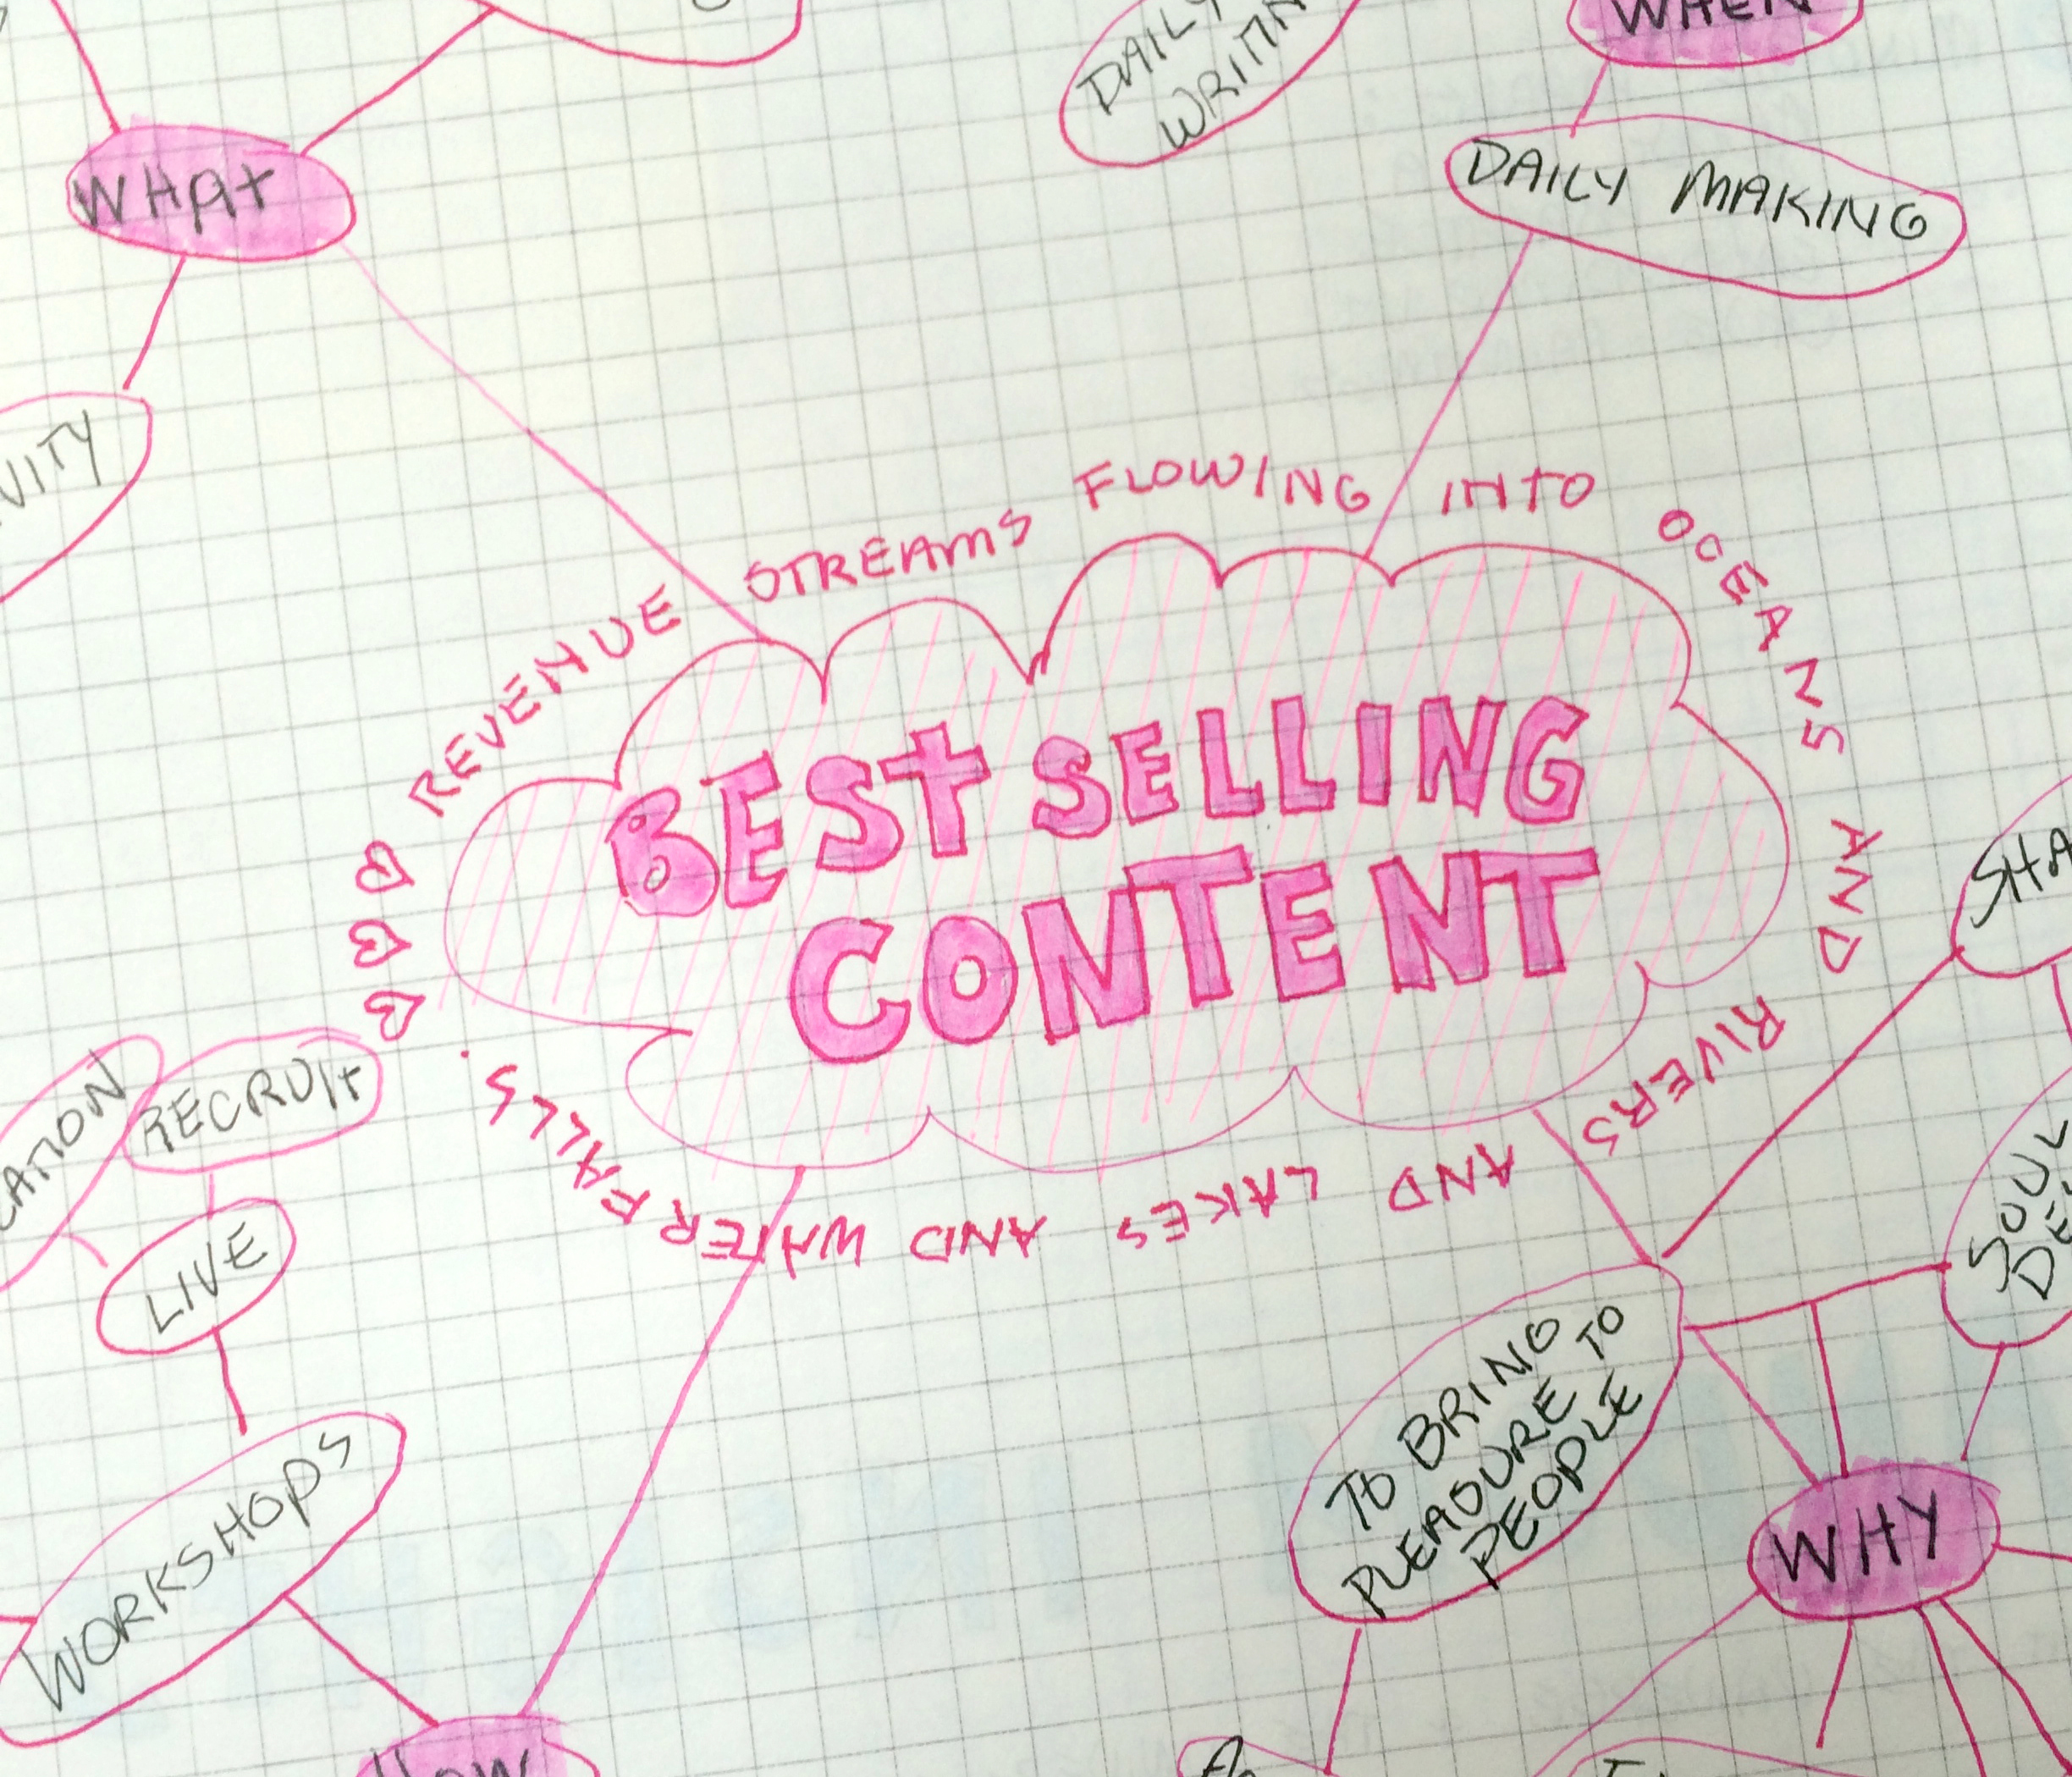 WHEN
DAILY
WHAT
DAILY MAKING
REVENUE STREAMS FLOWING INTO OCEANS AND RIVERS AND LAKES AND WATERFALLS.
BEST SELLING
CONTENT
RECRUIT
LIVE
WORKSHOPS
SOUL
TO BRING
PLEASURE TO
PEOPLE
WHY
HOW